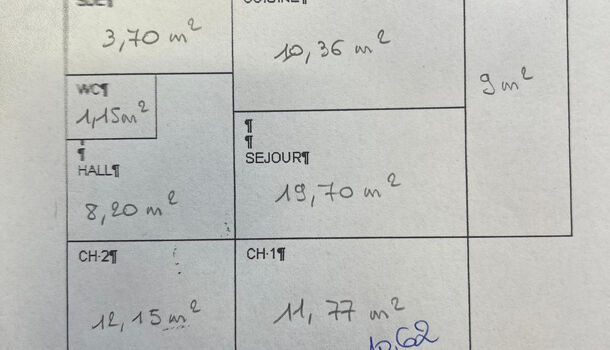 3,70 m²
10,36 m²
9 m²
WC¶
1,15m²
¶
HALL¶
8,20 m²
¶
¶
SEJOUR¶
19,70 m²
CH·2¶
12,15 m²
CH·1¶
11,77 m²
10,62